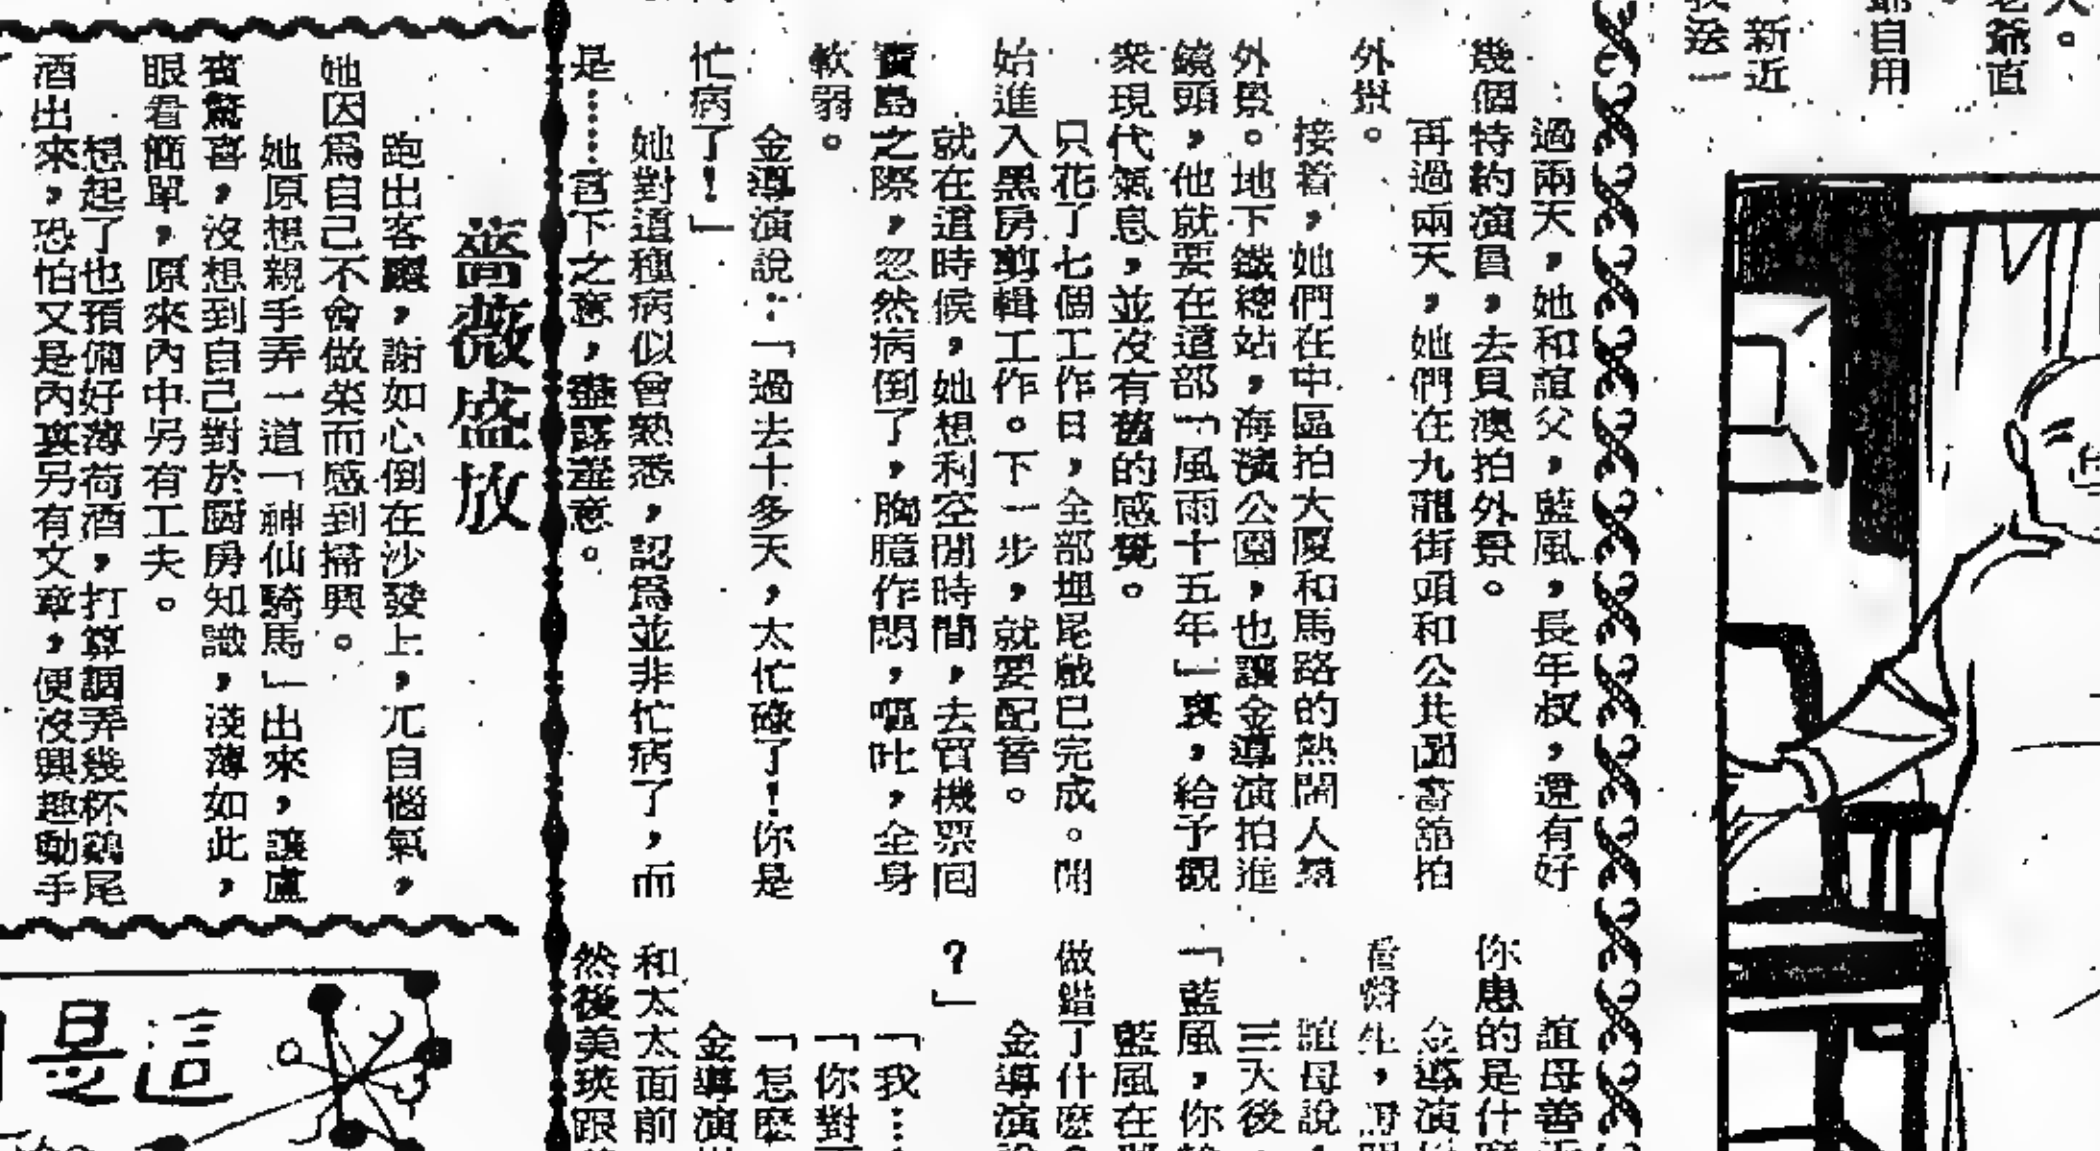 人。
老爺直
爺自用
新近
我送一
過兩天，她和誼父，藍風，長年叔，還有好
幾個特約演員，去貝澳拍外景。
再過兩天，她們在九龍街頭和公共圖書館拍
外景。
接着，她們在中區拍大廈和馬路的熱鬧人羣
外景。地下鐵總站，海濱公園，也讓金導演拍進
鏡頭，他就要在這部「風雨十五年」裏，給予觀
衆現代氣息，並沒有舊的感覺。
只花了七個工作日，全部埋尾戲已完成。開
始進入黑房剪輯工作。下一步，就要配音。
就在這時候，她想利空閒時間，去買機票回
寶島之際，忽然病倒了，胸臆作悶，嘔吐，全身
軟弱。
金導演說：「過去十多天，太忙碌了！你是
忙病了！」
她對這種病似會熟悉，認爲並非忙病了，而
是……言下之意，盡露羞意。
誼母善
你患的是什麼
金導演
看醫生，
誼母說，
三天後，
「藍風，你
藍風在
做錯了什麽
金導演說
？」
「我……
「你對
「怎麽
金導演
和太太面前
然後美瑛跟
薔薇盛放
跑出客廳，謝如心倒在沙發上，兀自惱氣，
她因爲自己不會做菜而感到掃興。
她原想親手弄一道「神仙騎馬」出來，讓盧
賓驚喜，沒想到自己對於厨房知識，淺薄如此，
眼看簡單，原來內中另有工夫。
想起了也預備好薄荷酒，打算調弄幾杯鷄尾
酒出來，恐怕又是內裏另有文章，便沒興趣動手
這是